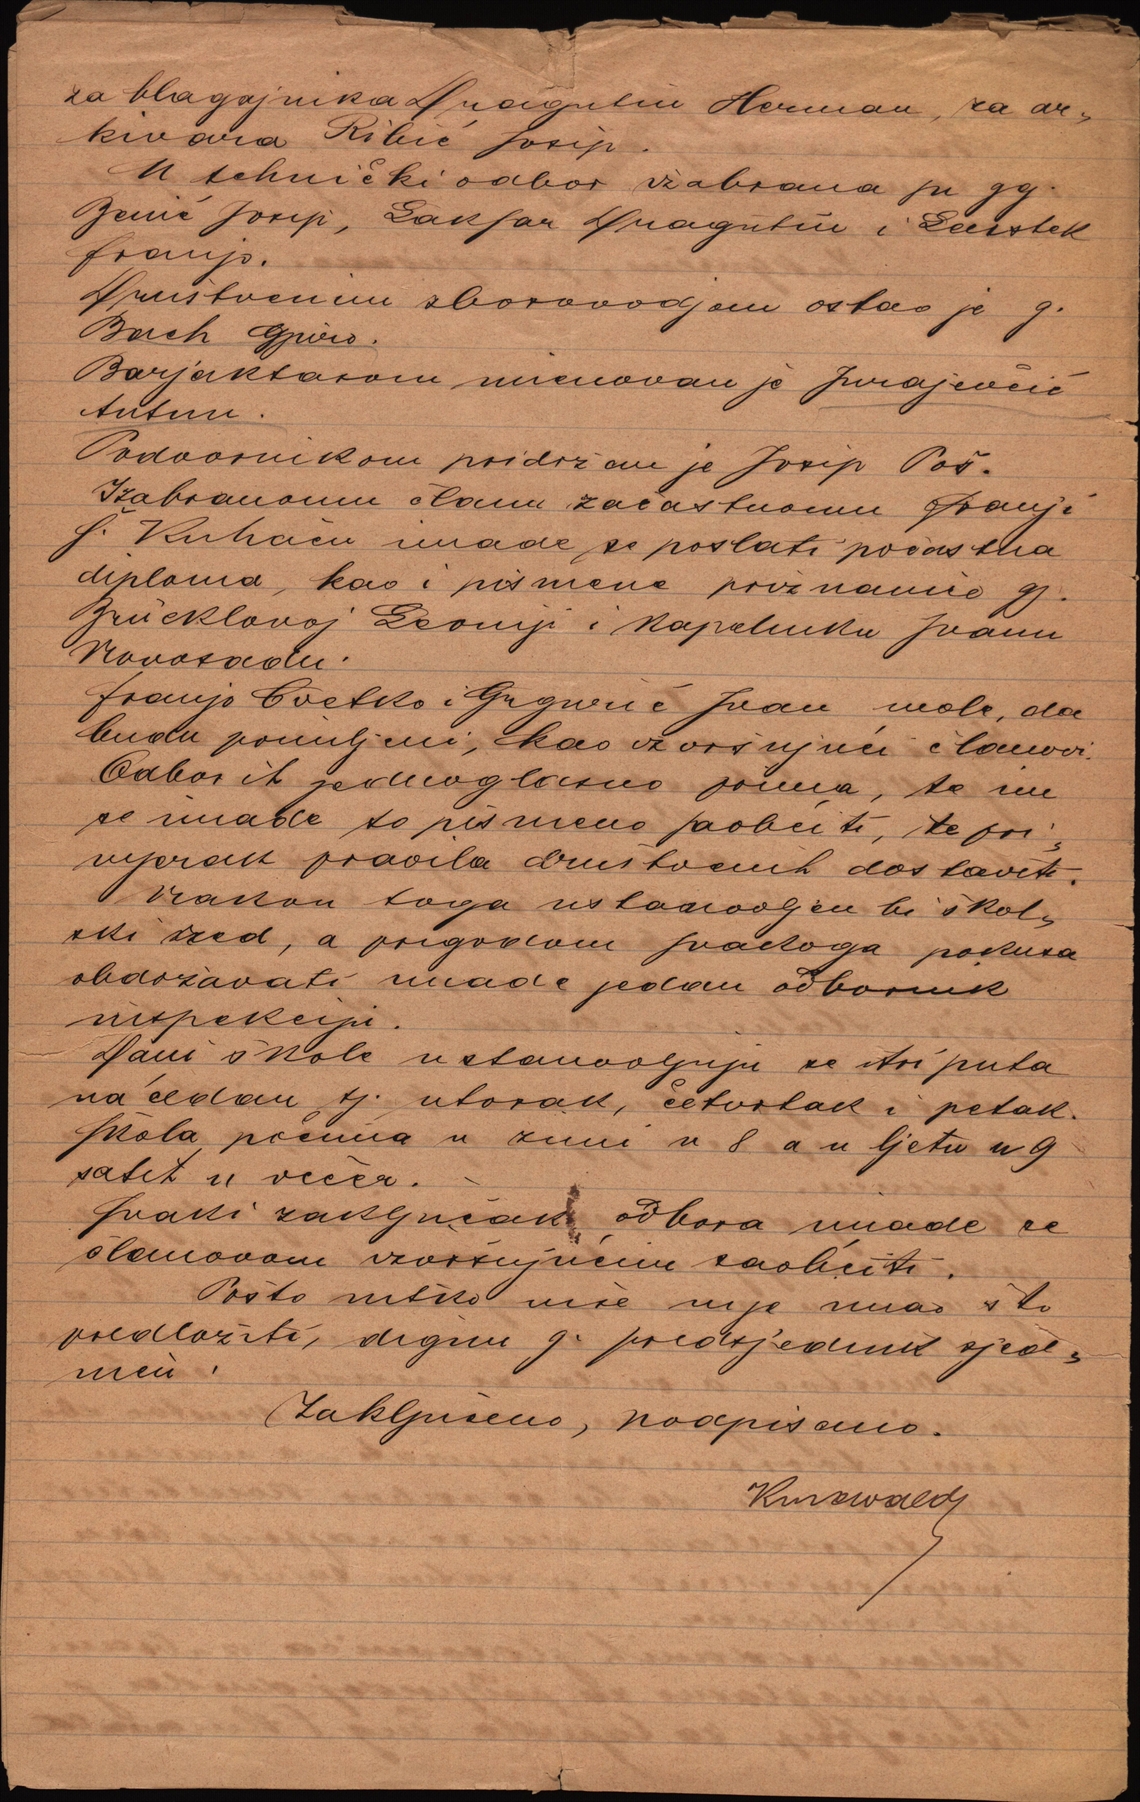 za blagajnika Dragutin Herman, za ar„
kivara Ribić Josip.
U tehnički odbor izabrana su gg.
Benić Josip, Lakšar Dragutin i
Franjo.
Društvenim zborovodjom ostao je g.
Bach Gjuro.
Barjaktarom imenovan je Jurajevčić
Antun.
Podvornikom pridržan je Josip Poš.
Izabranomu članu začastnomu Franji
Š. Kuhaču imade se poslati počastna
diploma, kao i pismene priznanice gj.
Brücklovoj Leoniji i Kapelniku Ivanu
Novosadu.
Franjo Cvetko i Grgurić Ivan mole, da
budu primljeni, kao izvršujući članovi.
Odbor ih jednoglasno prima, te im
se imade to pismeno saobćiti, te pri„
mjerak pravila društvenih dostaviti.
Nakon toga ustanovljen bi škol„
ski red, a prigodom svakoga pokusa
obdržavati imade jedan odbornik
inspekciju.
Dani škole ustanovljuju se tri puta
na tjedan tj. utorak, četvrtak i petak.
Škola počima u zimi u 8 a u ljetu u 9
satih u večer.
Svaki zaključak odbora imade se
članovom izvršujućim saobćiti.
Pošto nitko više nije imao što
predložiti, dignu g. predsjednik sjed„
nicu.
Zaključeno, podpisano.
Kunwald